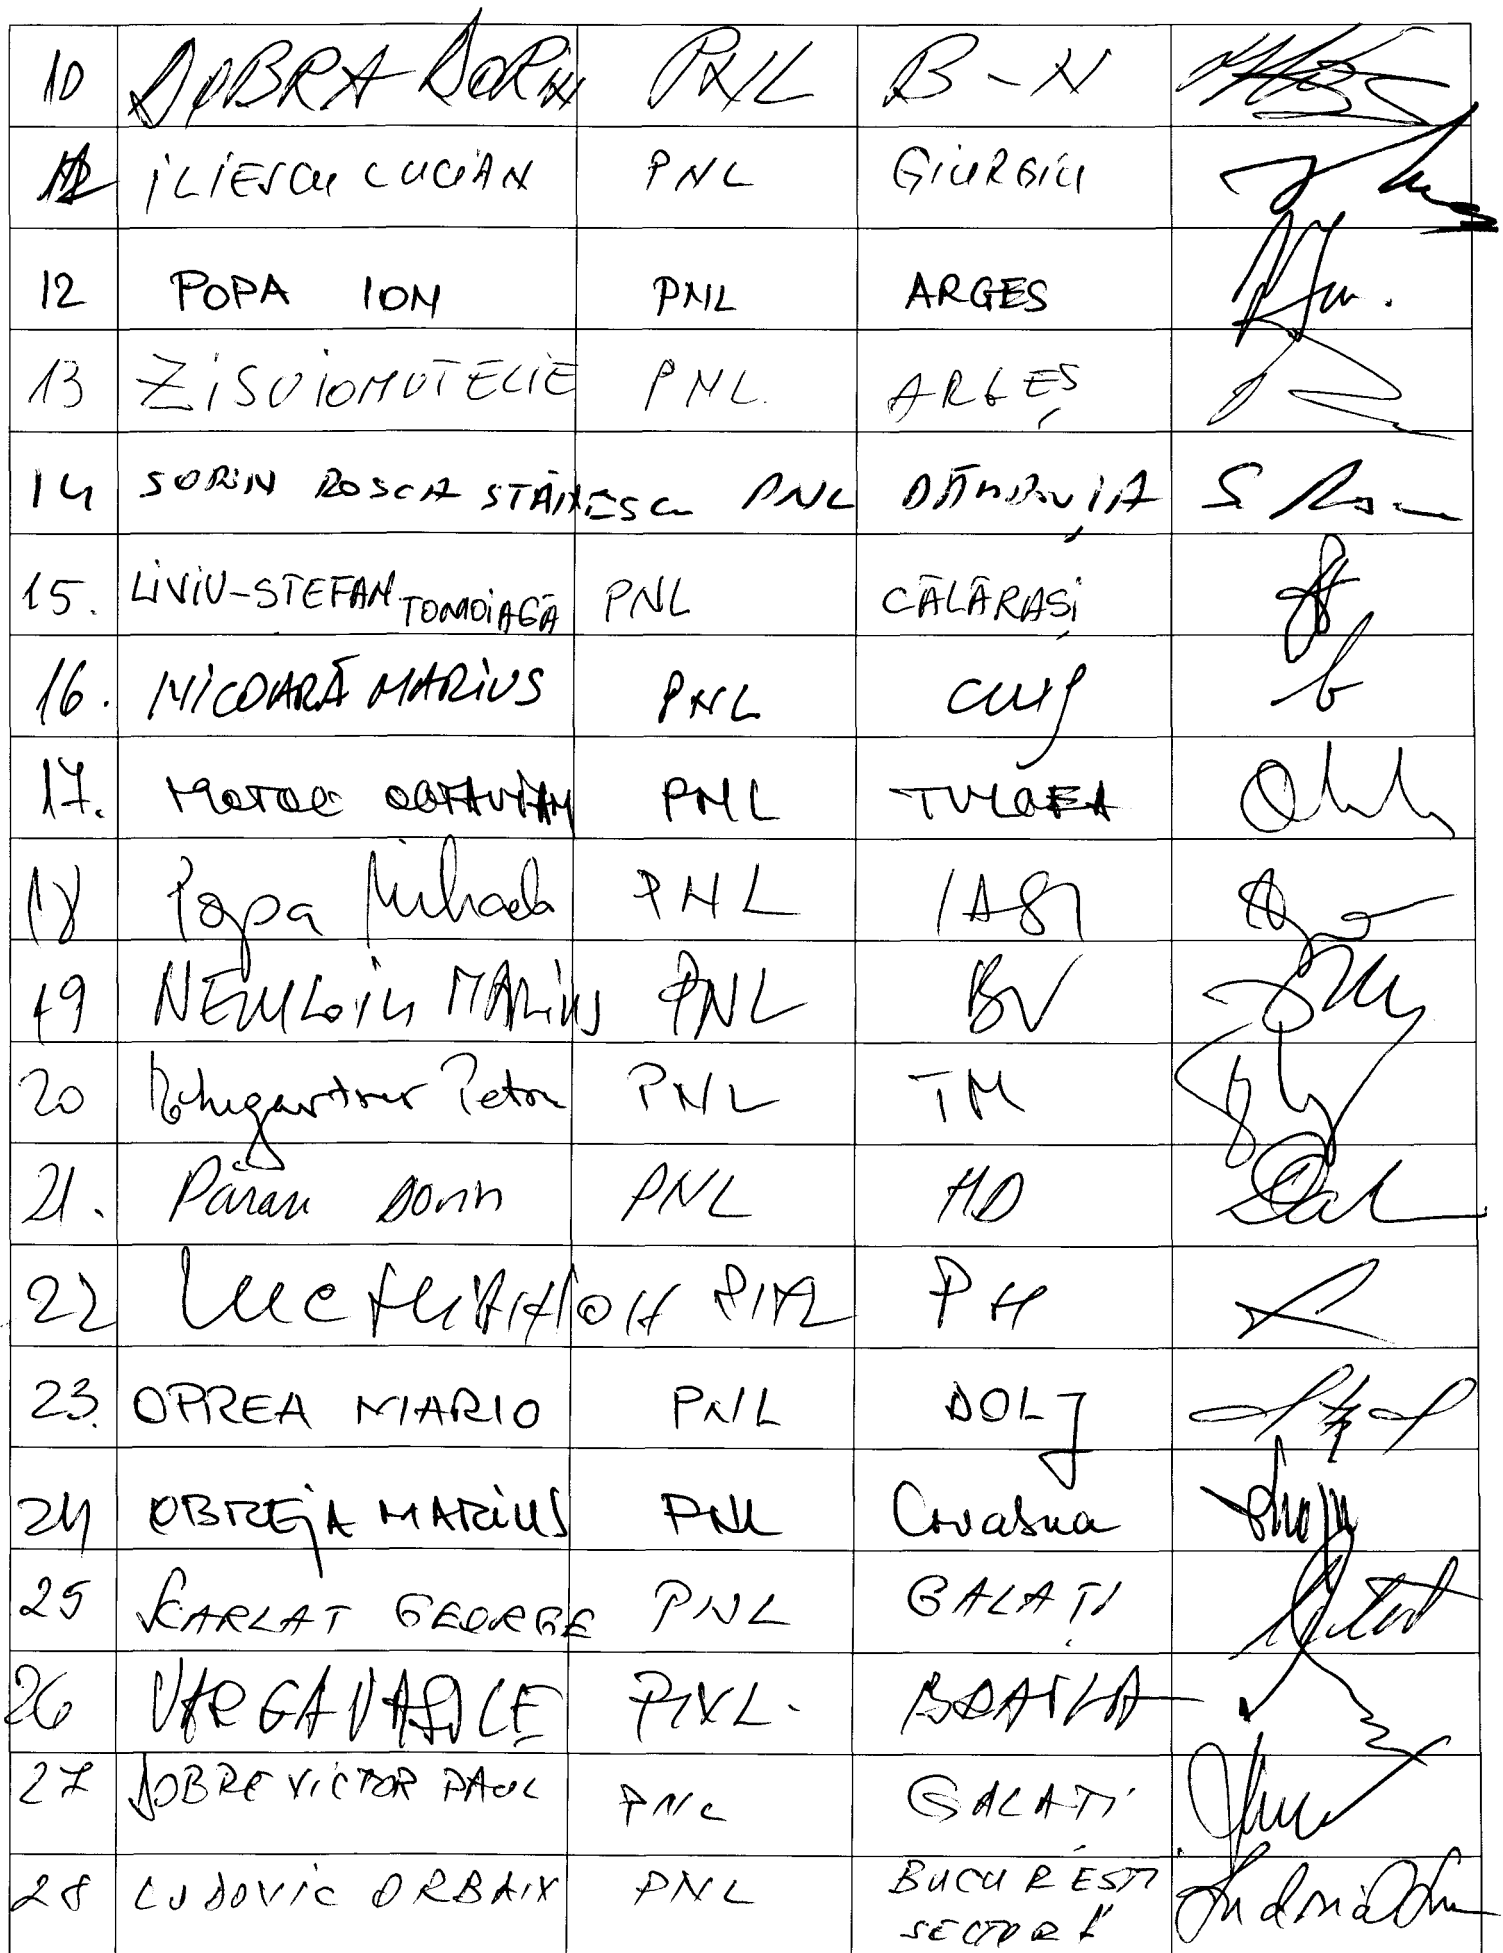 10 DOBRA DORIN PNL B-N
ILIESCU LUCIAN PNL GIURGIU
12 POPA ION PNL ARGES
13 ZISU IONUT ELIE PNL. ARGEȘ
14 SORIN ROSCA STĂNESCU PNL DÂMBOVIȚA
15. LIVIU-STEFAN TOMOIAGĂ PNL CĂLĂRAȘI
16. NICOARĂ MARIUS PNL CLUJ
17. MOTOC OCTAVIAN PNL TULCEA
18 Popa Mihaela PNL IASI
19 NECULOIU MARIUS PNL BV
20 Petru PNL TM
21. Păran Dorin PNL HD
22 PNL PH
23. OPREA MARIO PNL DOLJ
24 OBREJA MARIUS PNL Covasna
25 SCARLAT GEORGE PNL GALAȚI
26 VARGA VASILE PNL. BRAILA
27 DOBRE VICTOR PAUL PNL GALATI
28 LUDOVIC ORBAN PNL BUCURESTI
SECTOR